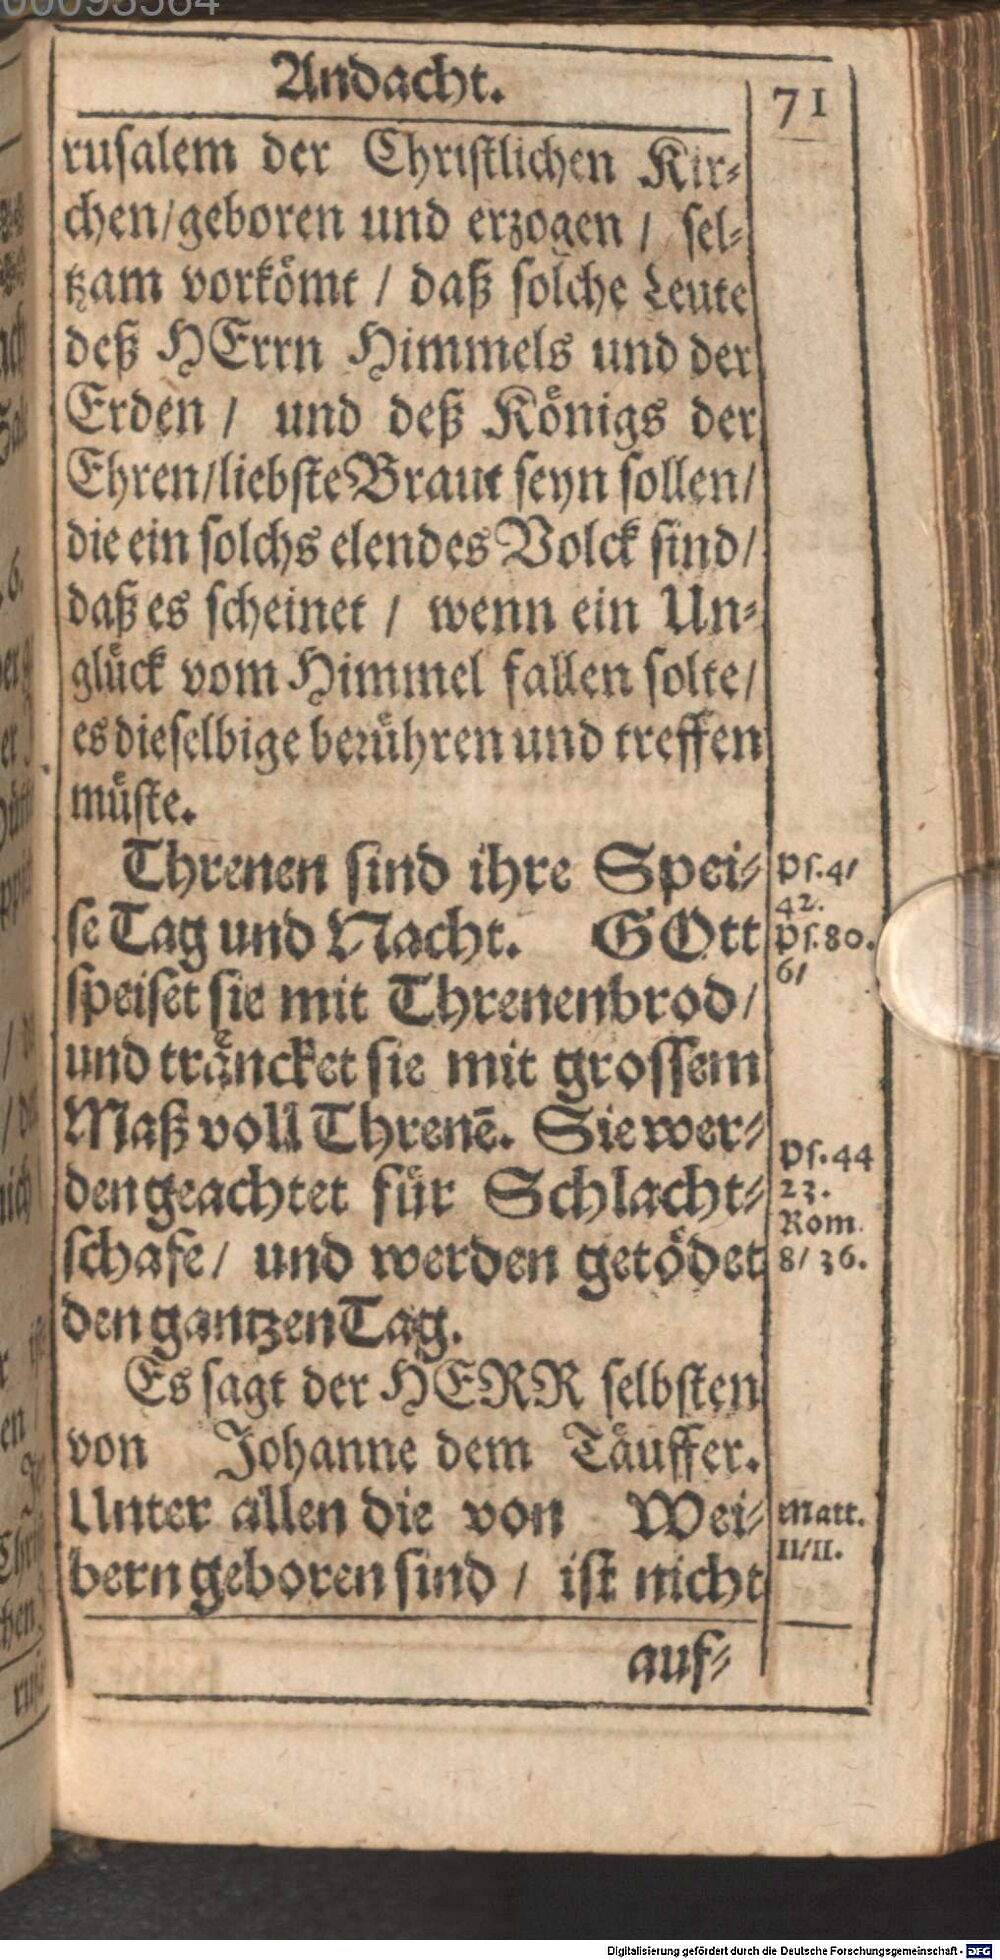 Andacht.
71
rusalem der Christlichen Kir-
chen/geboren und erzogen / sel-
tzam vorkömt / daß solche Leute
deß HErrn Himmels und der
Erden / und deß Königs der
Ehren/liebste Braut seyn sollen/
die ein solchs elendes Volck sind/
daß es scheinet / wenn ein Un-
glück vom Himmel fallen solte/
es dieselbige berühren und treffen
müste.
Threnen sind ihre Spei-
se Tag und Nacht. GOtt
speiset sie mit Threnenbrod/
und träncket sie mit grossem
Maß voll Threnē. Sie wer-
den geachtet für Schlacht-
schafe/ und werden getödet
den gantzen Tag.
Es sagt der HERR selbsten
von Johanne dem Täuffer.
Unter allen die von Wei-
bern geboren sind / ist nicht
auf-
Ps.4/
42.
Ps.80.
6/
Ps.44
23.
Rom.
8/36.
Matt.
11/11.
Digitalisierung gefördert durch die Deutsche Forschungsgemeinschaft - DFG